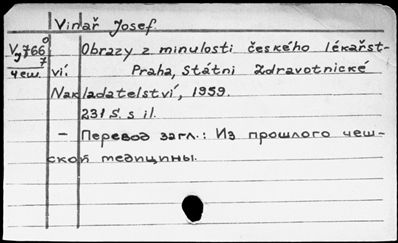 Vinař Josef.
Vy766 Obrazy z minulosti českého lékařst-
чеш. ví. Praha, Státni Zdravotnické
Nakladatelství, 1959.
231 S. s il.
— Перевод загл.: Из прошлого чеш-
ской медицины.